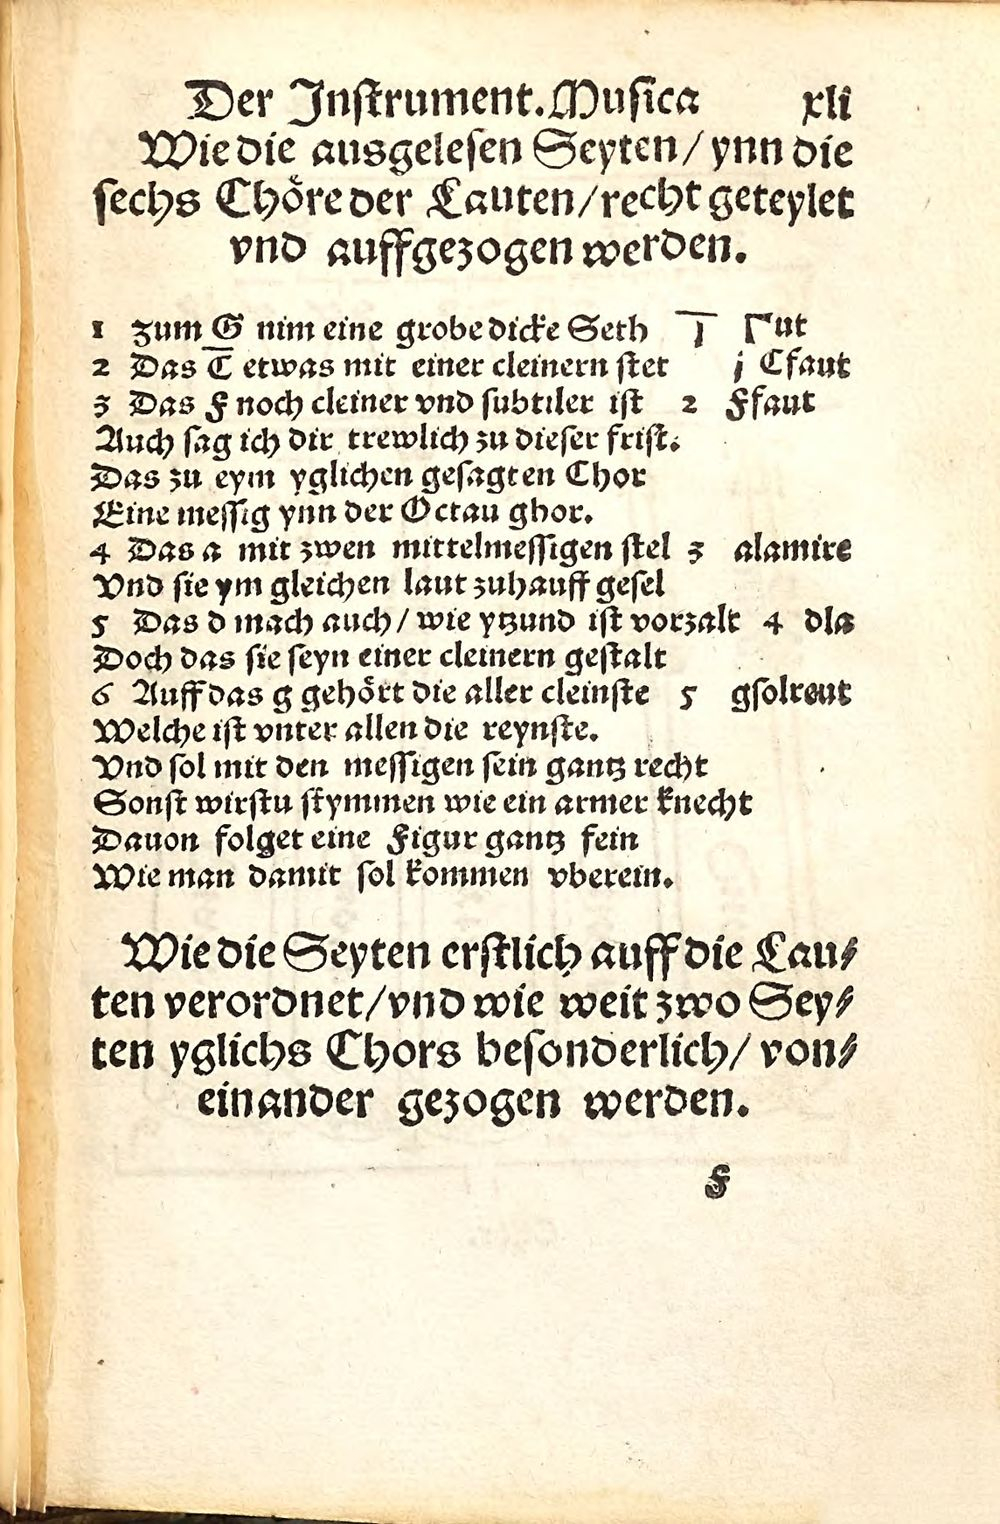 Der Inſtrument. Muſica xli
Wie die ausgeleſen Seyten / ynn die
ſechs Chöre der Lauten / recht geteylet
vnd auffgezogen werden.
1 zum G nim eine grobe dicke Seth ⁊̅ Γut
2 Das C etwas mit einer cleinern ſtet j Cfaut
3 Das F noch cleiner vnd ſubtiler iſt 2 Ffaut
Auch ſag ich dir trewlich zu dieſer friſt.
Das zu eym yglichen geſagten Chor
Eine meſſig ynn der Octau ghor.
4 Das a mit zwen mittelmeſſigen ſtel 3 alamire
Vnd ſie ym gleichen laut zuhauff geſel
5 Das d mach auch / wie ytzund iſt vorzalt 4 dla
Doch das ſie ſeyn einer cleinern geſtalt
6 Auff das g gehört die aller cleinſte 5 gſolreut
Welche iſt vnter allen die reynſte.
Vnd ſol mit den meſſigen ſein gantz recht
Sonſt wirſtu ſtymmen wie ein armer knecht
Dauon folget eine Figur gantz fein
Wie man damit ſol kommen vberein.
Wie die Seyten erſtlich auff die Lau⸗
ten verordnet / vnd wie weit zwo Sey⸗
ten yglichs Chors beſonderlich / von⸗
einander gezogen werden.
F